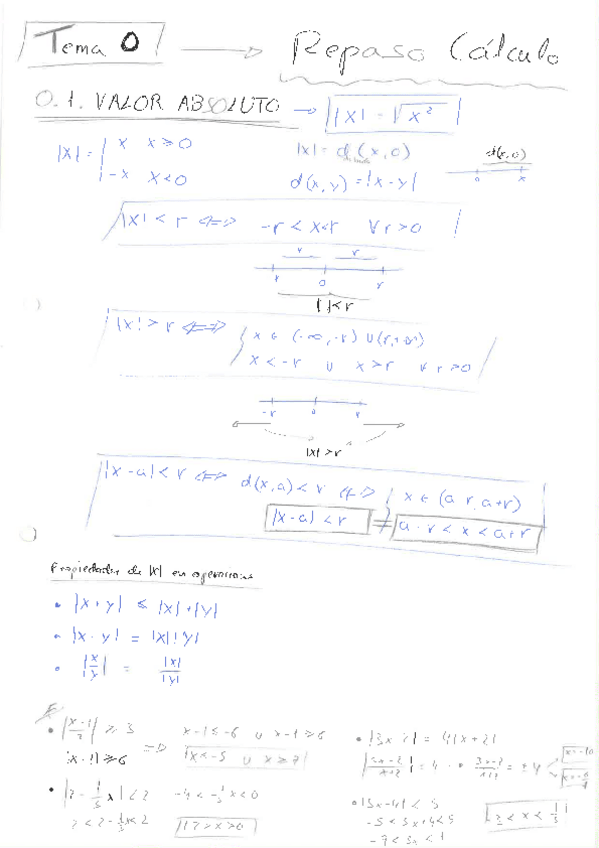 Tema 0 → Repaso Cálculo
0.1. VALOR ABSOLUTO → |x| = √x²
|x| = { x x ≥ 0
-x x < 0
|x| = d(x, 0)
d(x, y) = |x - y|
d(x, 0)
0 x
|x| < r ⇔ -r < x < r ∀ r > 0
r r
-r 0 r
| | < r
|x| > r ⇔ { x ∈ (-∞, -r) ∪ (r, +∞)
x < -r ∪ x > r ∀ r > 0
-r 0 r
|x| > r
|x - a| < r ⇔ d(x, a) < r ⇔ { x ∈ (a r, a+r)
|x - a| < r = a - r < x < a + r
Propiedades de |x| en operaciones
• |x + y| ≤ |x| + |y|
• |x · y| = |x| |y|
• |x/y| = |x|/|y|
• |x-1/2| ≥ 3 x - 1 ≤ -6 ∪ x - 1 ≥ 6
|x - 1| ≥ 6 ⇒ x ≤ -5 ∪ x ≥ 7
• |2 - 1/3 x| < 2 -4 < -1/3 x < 0
-2 < 2 - 1/3 x < 2 12 > x > 0
• |3x - 2| = 4|x + 2|
|3x-2/x+2| = 4 · 3x-2/x+2 = ± 4 x = -10
• |3x + 4| < 5
-5 < 3x + 4 < 5